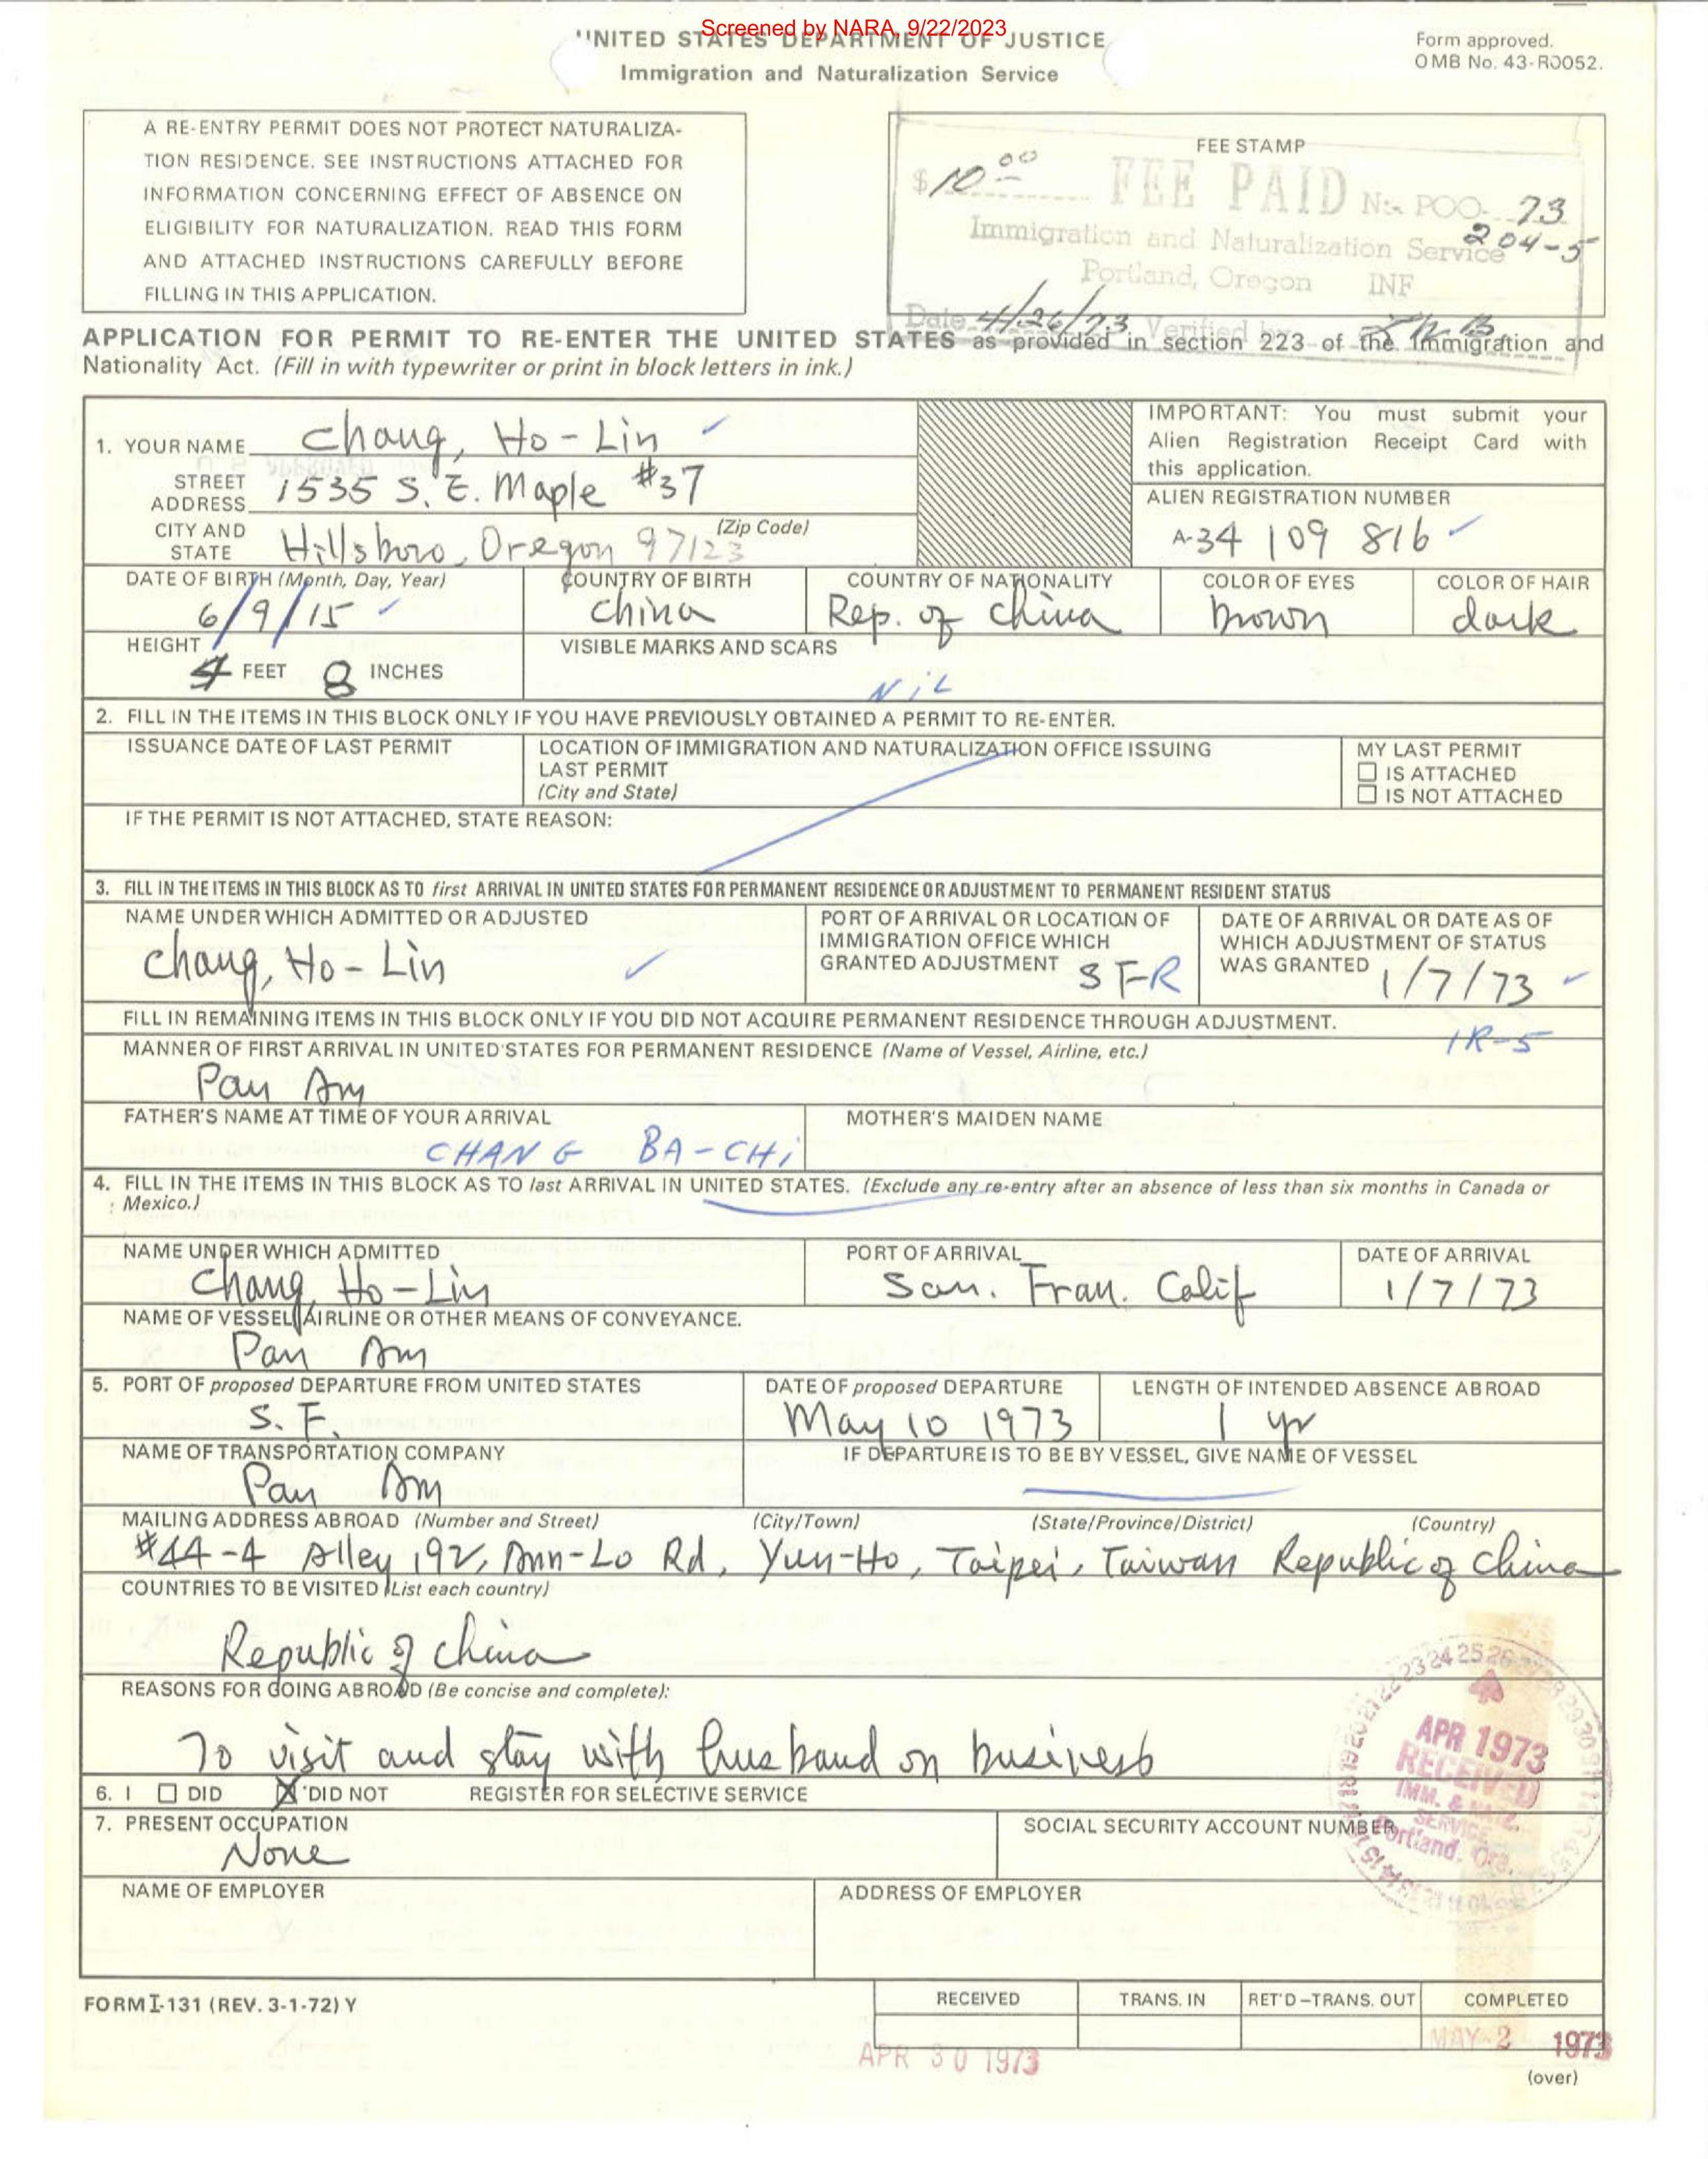 Screened by NARA, 9/22/2023
UNITED STATES DEPARTMENT OF JUSTICE
Immigration and Naturalization Service
Form approved.
OMB No. 43-R0052.
A RE-ENTRY PERMIT DOES NOT PROTECT NATURALIZA-
TION RESIDENCE. SEE INSTRUCTIONS ATTACHED FOR
INFORMATION CONCERNING EFFECT OF ABSENCE ON
ELIGIBILITY FOR NATURALIZATION. READ THIS FORM
AND ATTACHED INSTRUCTIONS CAREFULLY BEFORE
FILLING IN THIS APPLICATION.
FEE STAMP
$10 00 FEE PAID No. POO- 73
204-5
Immigration and Naturalization Service
Portland, Oregon INF
Date 4/26/73 Verified by
APPLICATION FOR PERMIT TO RE-ENTER THE UNITED STATES as provided in section 223 of the Immigration and
Nationality Act. (Fill in with typewriter or print in block letters in ink.)
1. YOUR NAME Chang, Ho-Lin
STREET ADDRESS 1535 S.E. Maple #37
CITY AND STATE Hillsboro, Oregon 97123 (Zip Code)
IMPORTANT: You must submit your
Alien Registration Receipt Card with
this application.
ALIEN REGISTRATION NUMBER
A-34 109 816
DATE OF BIRTH (Month, Day, Year) COUNTRY OF BIRTH COUNTRY OF NATIONALITY COLOR OF EYES COLOR OF HAIR
6/9/15 China Rep. of China brown dark
HEIGHT VISIBLE MARKS AND SCARS
4 FEET 8 INCHES NiL
2. FILL IN THE ITEMS IN THIS BLOCK ONLY IF YOU HAVE PREVIOUSLY OBTAINED A PERMIT TO RE-ENTER.
ISSUANCE DATE OF LAST PERMIT
LOCATION OF IMMIGRATION AND NATURALIZATION OFFICE ISSUING
LAST PERMIT
(City and State)
MY LAST PERMIT
☐ IS ATTACHED
☐ IS NOT ATTACHED
IF THE PERMIT IS NOT ATTACHED, STATE REASON:
3. FILL IN THE ITEMS IN THIS BLOCK AS TO first ARRIVAL IN UNITED STATES FOR PERMANENT RESIDENCE OR ADJUSTMENT TO PERMANENT RESIDENT STATUS
NAME UNDER WHICH ADMITTED OR ADJUSTED
Chang, Ho-Lin
PORT OF ARRIVAL OR LOCATION OF
IMMIGRATION OFFICE WHICH
GRANTED ADJUSTMENT SFR
DATE OF ARRIVAL OR DATE AS OF
WHICH ADJUSTMENT OF STATUS
WAS GRANTED 1/7/73
FILL IN REMAINING ITEMS IN THIS BLOCK ONLY IF YOU DID NOT ACQUIRE PERMANENT RESIDENCE THROUGH ADJUSTMENT.
IR-5
MANNER OF FIRST ARRIVAL IN UNITED STATES FOR PERMANENT RESIDENCE (Name of Vessel, Airline, etc.)
Pan Am
FATHER'S NAME AT TIME OF YOUR ARRIVAL MOTHER'S MAIDEN NAME
CHANG BA-CHi
4. FILL IN THE ITEMS IN THIS BLOCK AS TO last ARRIVAL IN UNITED STATES. (Exclude any re-entry after an absence of less than six months in Canada or
Mexico.)
NAME UNDER WHICH ADMITTED PORT OF ARRIVAL DATE OF ARRIVAL
Chang, Ho-Lin San. Fran. Calif 1/7/73
NAME OF VESSEL, AIRLINE OR OTHER MEANS OF CONVEYANCE.
Pan Am
5. PORT OF proposed DEPARTURE FROM UNITED STATES DATE OF proposed DEPARTURE LENGTH OF INTENDED ABSENCE ABROAD
S.F. May 10 1973 1 yr
NAME OF TRANSPORTATION COMPANY IF DEPARTURE IS TO BE BY VESSEL, GIVE NAME OF VESSEL
Pan Am
MAILING ADDRESS ABROAD (Number and Street) (City/Town) (State/Province/District) (Country)
#44-4 Alley 192, Ann-Lo Rd, Yun-Ho, Taipei, Taiwan Republic of China
COUNTRIES TO BE VISITED (List each country)
Republic of China
REASONS FOR GOING ABROAD (Be concise and complete):
To visit and stay with husband on business
6. I ☐ DID ☒ DID NOT REGISTER FOR SELECTIVE SERVICE
7. PRESENT OCCUPATION SOCIAL SECURITY ACCOUNT NUMBER
None
APR 1973
RECEIVED
IMM. & NATZ.
SERVICE
Portland, Ore.
NAME OF EMPLOYER ADDRESS OF EMPLOYER
FORM I-131 (REV. 3-1-72) Y
RECEIVED TRANS. IN RET'D-TRANS. OUT COMPLETED
APR 30 1973 MAY 2 1973
(over)